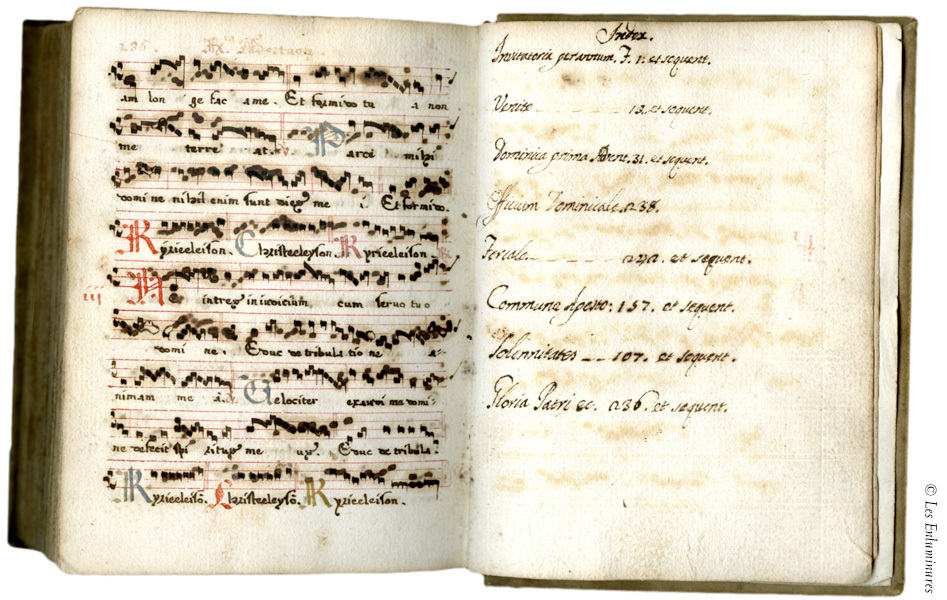 236.
am lon ge fac a me. Et formido tu a non
me terre at. Parce mihi
domine nihil enim sunt dies me i. Et formido.
Kyrieeleison. Christeeleyson Kyrieeleison.
iij Ne intres in iudicium cum servo tuo
domi ne. Educ de tribulatio ne a-
nimam me a. Velociter exaudi me domi-
ne defecit spi ritus me us. Educ de tribula-
Kyrieeleisō. Christeeleysō. Kyrieeleison.
Index.
Invitatoria per annum, F. 1. et sequent.
Venite 13. et sequent.
Dominica prima Advent. 31. et sequent.
Officium Dominicale. 238.
Feriale 242. et sequent.
Commune Aposto: 157. et sequent.
Solennitates 107. et sequent.
Gloria Patri &c. 236. et sequent.
© Les Enluminures